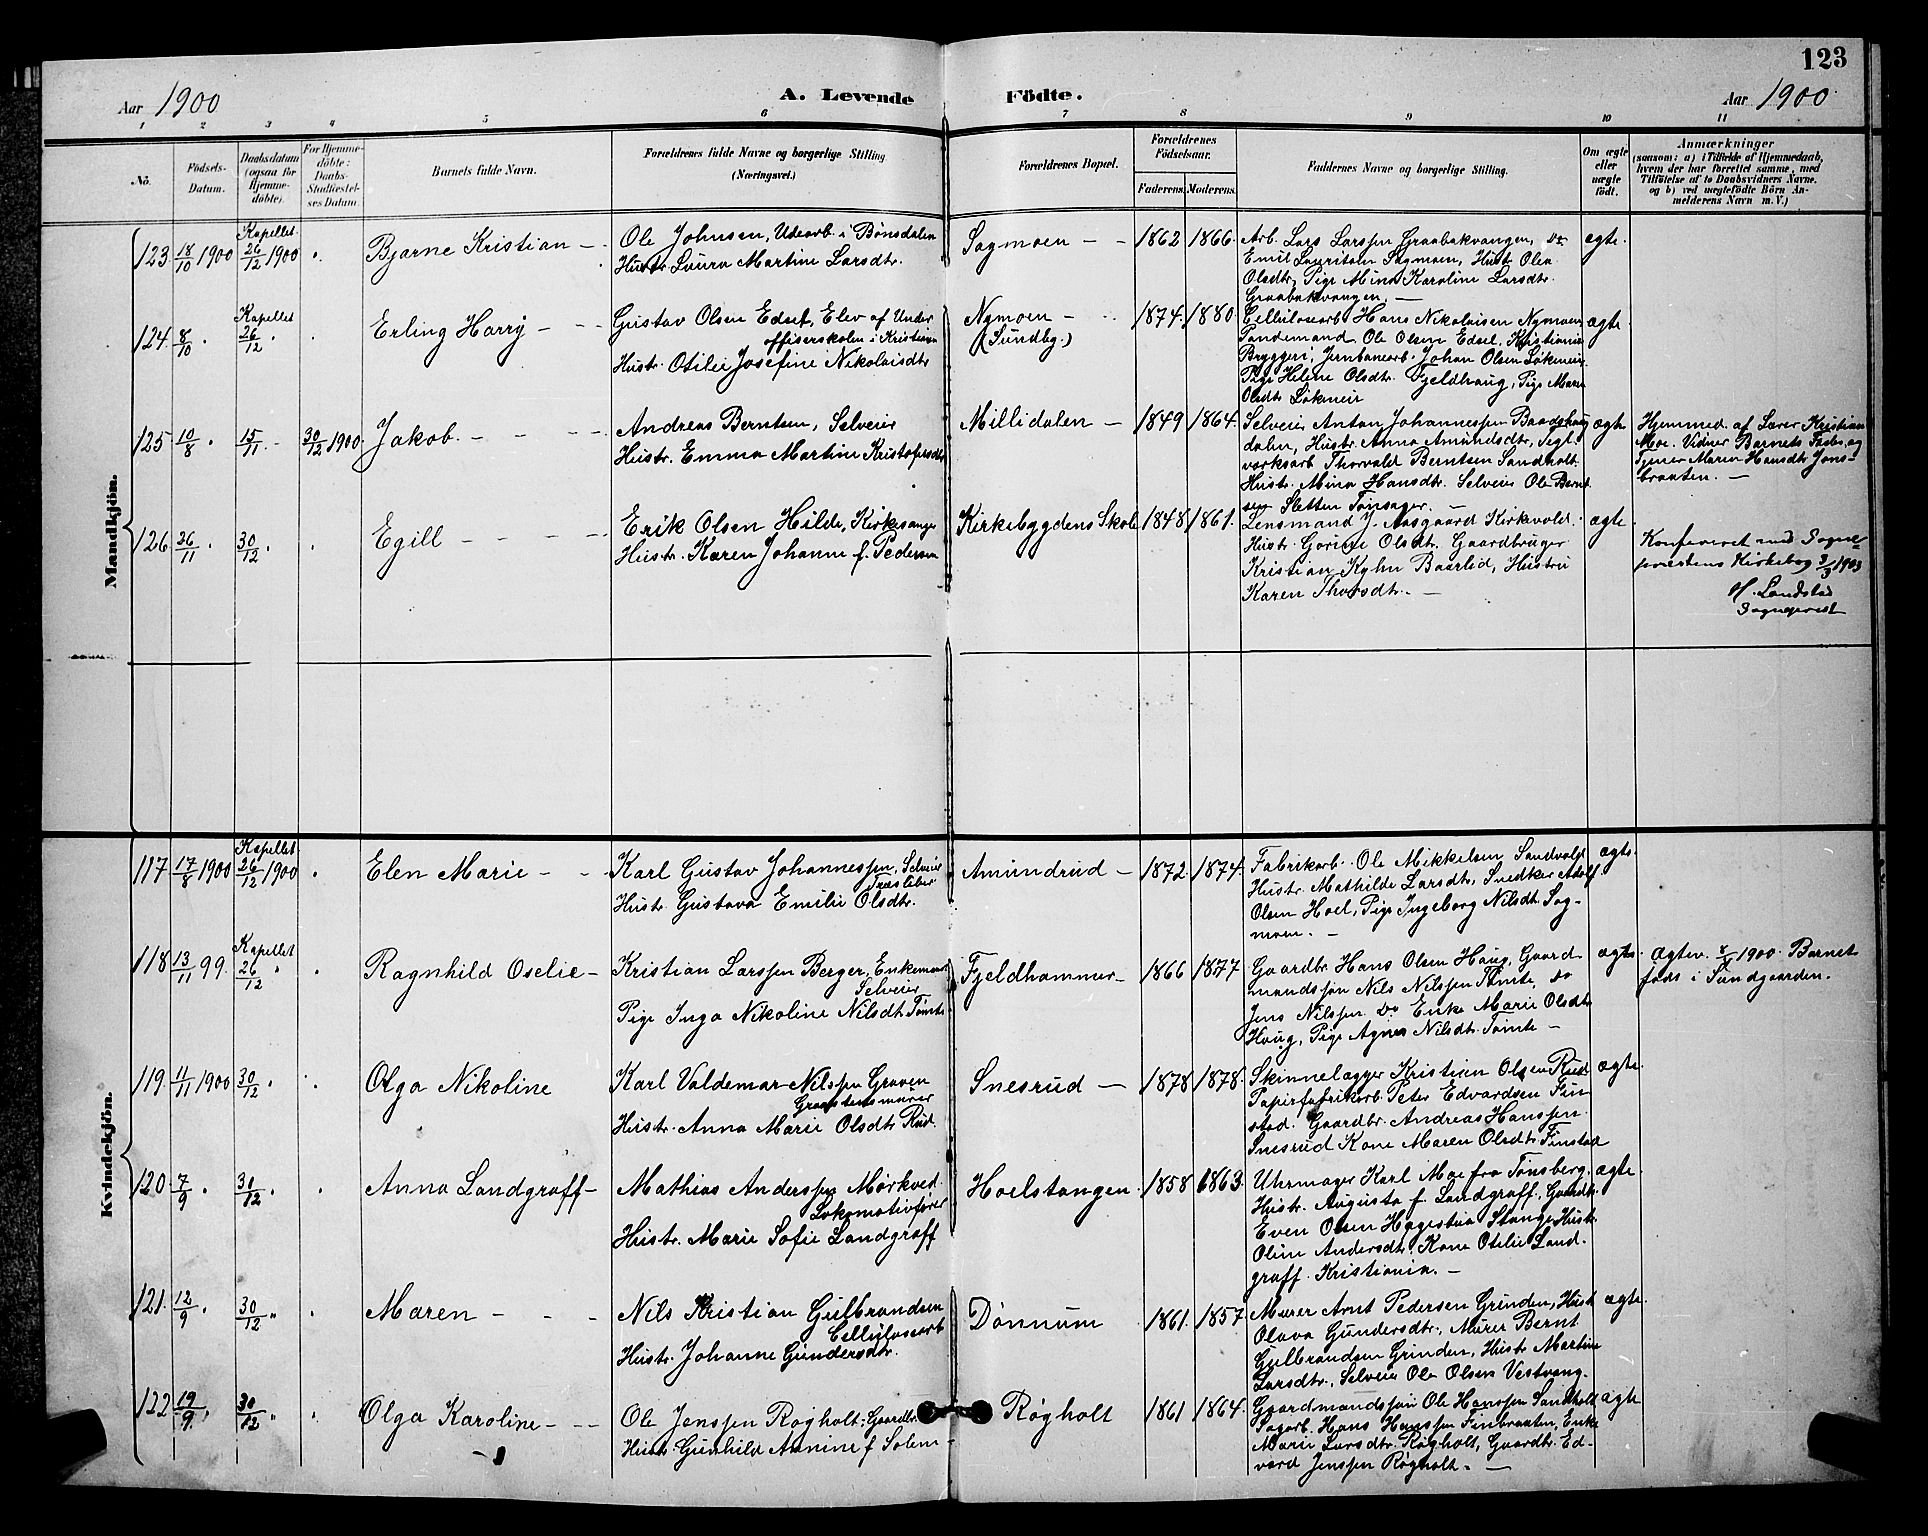 123
Aar 1900
A. Levende Födte.
Aar 1900
1 2 3 4 5 6 7 8 9 10 11
No.
Födsels-Datum.
Daabsdatum (ogsaa for Hjemmedöbte).
For Hjemmedöbte: Daabs-Stadfæstelses Datum.
Barnets fulde Navn.
Forældrenes fulde Navne og borgerlige Stilling (Næringsvei.)
Forældrenes Bopæl.
Forældrenes Födselsaar.
Faderens. Moderens.
Faddernes Navne og borgerlige Stilling.
Om ægte eller uægte födt.
Anmærkninger
(saasom: a) i Tilfælde af Hjemmedaab,
hvem der har forrettet samme, med
Tilföielse af to Daabsvidners Navne,
og b) ved uægtefödte Börn An-
melderens Navn m. V.)
Mandkjön.
123. 18/10 1900 Kapellet 26/12 1900 Bjarne Kristian
Ole Johnsen, Udearb. i Bönsdalen
Hustr. Laura Martine Larsdtr.
Sagmoen 1862 1866.
Arb. Lars Larssen Graabakvangen, Do
Emil Lauritsen Sagmoen, Hustr. Olea
Olsdtr, Pige Mina Karoline Larsdtr.
Graabakvangen. —
ægte.
124. 8/10 Kapellet 26/12 Erling Harry
Gustav Olsen Edset, Elev af Under
offiserskolen i Kristiania
Hustr. Otilie Josefine Nikolaisdtr
Nymoen
(Sundbg.)
1874. 1880.
Cellulosearb. Hans Nikolaisen Nymoen
Tandemand Ole Olsen Edset, Kristiania
Bryggeri, Jernbanearb. Johan Olsen Løkmeie
Pige Helene Olsdtr. Fjeldhaug, Pige Marie
Olsdtr Løkmeie
ægte
125. 10/8 15/11 30/12 1900 Jakob.
Andreas Berntsen, Selveier
Hustr. Emma Martine Kristofersdtr
Millidalen 1849 1864.
Selveier Anton Johannessen Baadshaug
dalen, Hustr. Anna Amundsdtr, Tegl-
verksarb Thorvald Berntsen Sandholt.
Hustr. Mina Hansdtr. Selveier Ole Bernt
sen Sletten Tønsager. —
ægte
Hjemmed. af Lærer Kristian
Moe. Vidner Barnets Fader, og
Tjener Maren Hansdtr Jons-
braaten. —
126. 26/11 30/12 Egill
Erik Olsen Hilde, Kirkesanger
Hustr. Karen Johanne f. Pedersen
Kirkebygdens Skole 1848 1861.
Lensmand J. Aasgaard Kirkvold.
Hustr. Gorine Olsdtr. Gaardbruger
Kristian Kyhn Baarlid, Hustru
Karen Thorsdtr. —
ægte.
Konfereret med Sogne-
prestens Kirkebog 3/3 1903
H. Landstad
Sogneprest
Kvindekjön.
117 17/8 1900 Kapellet 26/12 1900 Elen Marie
Karl Gustav Johannessen, Selveier
Hustr. Gustava Emilie Olsdtr.
Amundrud 1872 1874.
Fabrikarb. Ole Mikkelsen Sandvold
Hustr. Mathilde Larsdtr, Snedker Adolf
Olsen Hoel, Pige Ingeborg Nilsdtr Sag-
moen. —
ægte.
118 13/11 99. Kapellet 26/12 Ragnhild Oselie
Kristian Larssen Berger, Enkemand
Selveier
Pige Inga Nikoline Nilsdtr Tømte
Fjeldhammer 1866 1877
Gaardbr. Hans Olsen Haug. Gaard
mandssøn Nils Nilssen Tømte, do
Jens Nilssen Do Enke Marie Olsdtr
Haug, Pige Agnes Nilsdtr. Tømte —
ægte.
Ægtev. 1900. Barnet
født i Sundgaarden.
119. 11/11 1900 30/12 Olga Nikoline
Karl Valdemar Nilssen Graven
Graastensmurer
Hustr. Anna Marie Olsdtr Rud.
Snesrud 1878 1878.
Skinnelægger Kristian Olsen Rud
Papirfabrikarb. Peter Edvardsen Fin
stad. Gaardbr. Andreas Hanssen
Snesrud Kone Maren Olsdtr. Finstad
ægte.
120. 7/9 30/12 Anna Landgraff
Mathias Anderssen Mørkved.
Lokomotivfører
Hustr. Marie Sofie Landgraff
Hoelstangen. 1858 1863.
Uhrmager Karl Moe fra Tønsberg.
Hustr. Augusta f. Landgraff, Gaardbr.
Even Olsen Hagestua Stange Hustr.
Oline Andersdtr. Kone Otilie Land-
graff. Kristiania. —
ægte.
121. 12/9 30/12 Maren
Nils Kristian Gulbrandsen
Cellulosearb
Hustr. Johanne Gundersdtr.
Dønnum 1861. 1857
Murer Arnt Pedersen Grinden, Hustr
Olava Gundersdtr., Murer Bernt
Gulbrandsen Grinden, Hustr Martine
Larsdtr., Selveier Ole Olsen Vestvang.
ægte.
122 19/9 30/12 Olga Karoline
Ole Jenssen Røgholt, Gaardbr.
Hustr. Gunhild Annine f. Solem
Røgholt 1861 1864.
Gaardmandssøn Ole Hanssen Sandholt
Sagarb. Hans Hanssen Finbraaten, Enke
Marie Larsdtr. Røgholt, Gaardbr. Ed-
vard Jenssen Røgholt. —
ægte